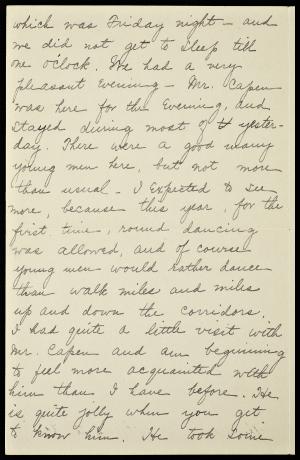 which was Friday night – and
we did not get to sleep till
one o'clock. We had a very
pleasant Evening – Mr. Capen
was here for the Evening, and
stayed during most of yester-
day. There were a good many
young men here, but not more
than usual – I Expected to see
more, because this year, for the
first time –, round dancing
was allowed, and of course
young men would rather dance
than walk miles and miles
up and down the corridors.
I had quite a little visit with
Mr. Capen and am beginning
to feel more acquainted with
him than I have before. He
is quite jolly when you get
to know him. He took some